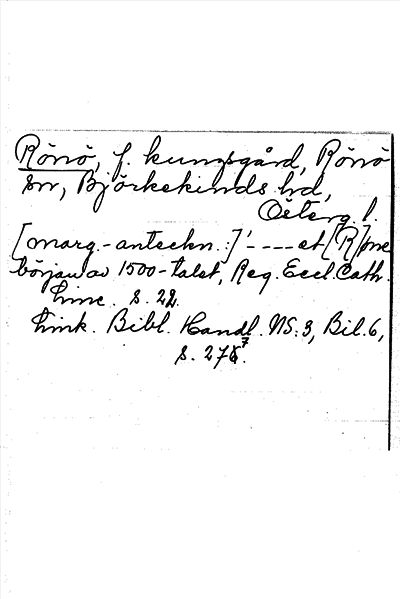 Rönö, f. kungsgård, Rönö
sn, Björkekinds hd,
Österg. l.
[marg.-anteckn.:] ' ---- et [R]øne
början av 1500-talet, Reg. Eccl. Cath.
Linc. S. 22.
Link. Bibl. Handl. NS: 3, Bil. 6,
S. 277.